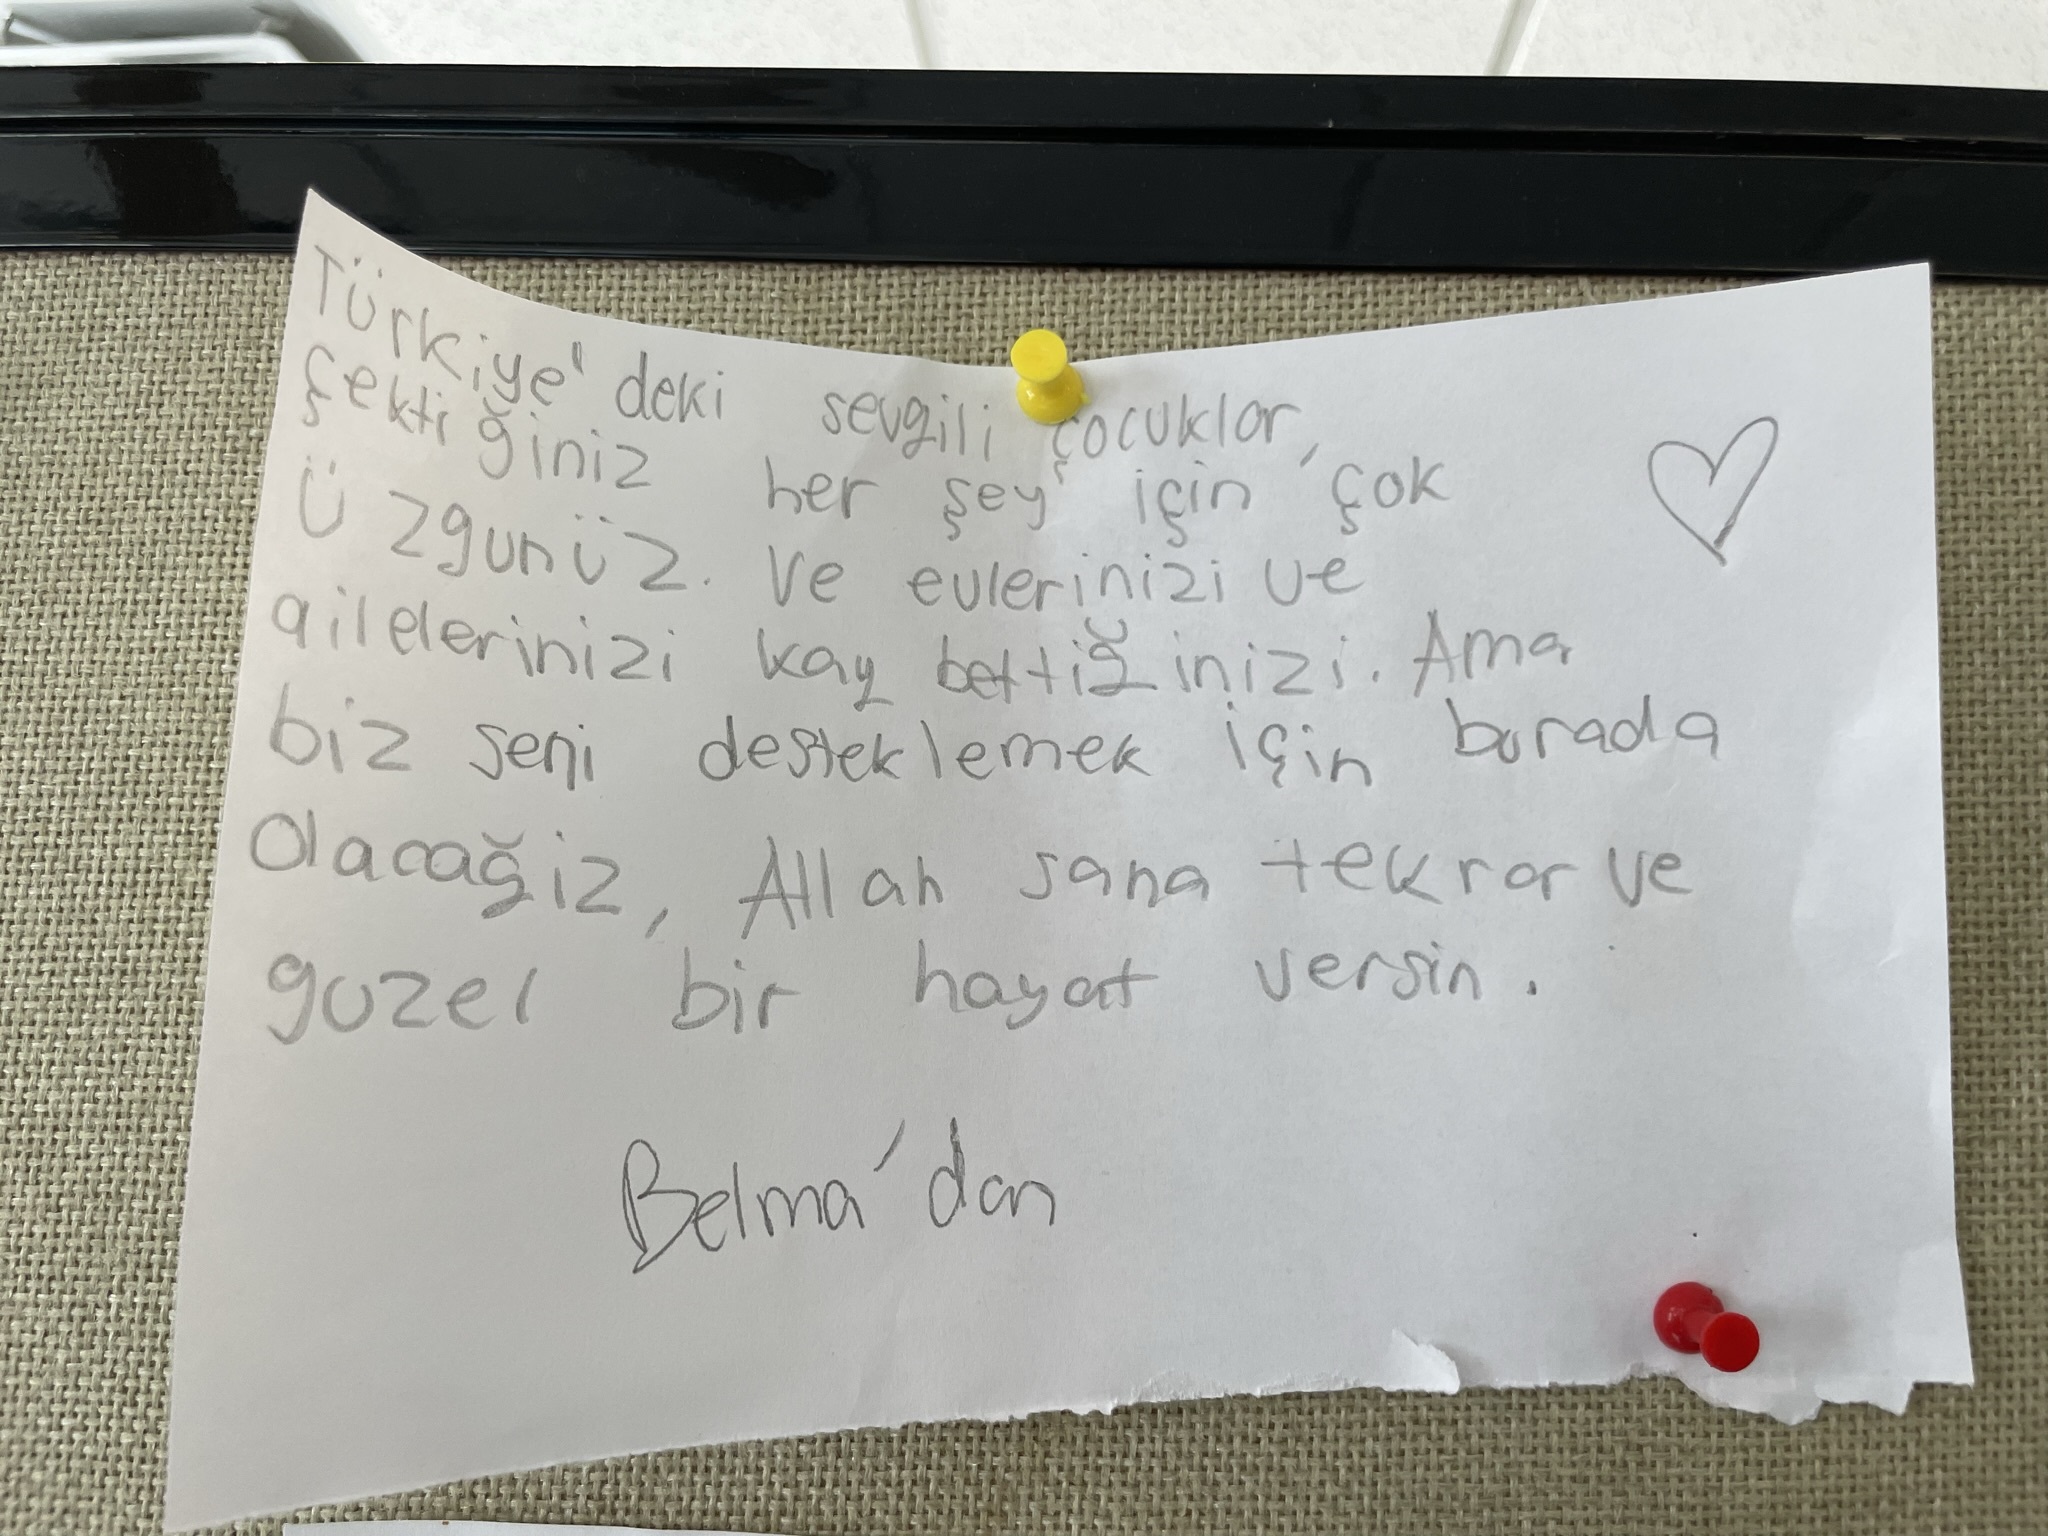 Türkiye'deki sevgili çocuklar,
çektiğiniz her şey için çok
üzgunüz. Ve evlerinizi ve
ailelerinizi kay bettiğinizi. Ama
biz seni desteklemek için burada
olacağiz, Allah sana tekrar ve
guzel bir hayat versin.
Belma'dan